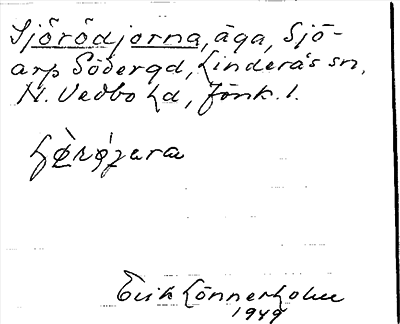 Sjörödjorna, äga, Sjö-
arp Södergd, Linderås sn,
N. Vedbo hd, Jönk. l.
Erik Lönnerholm
1949